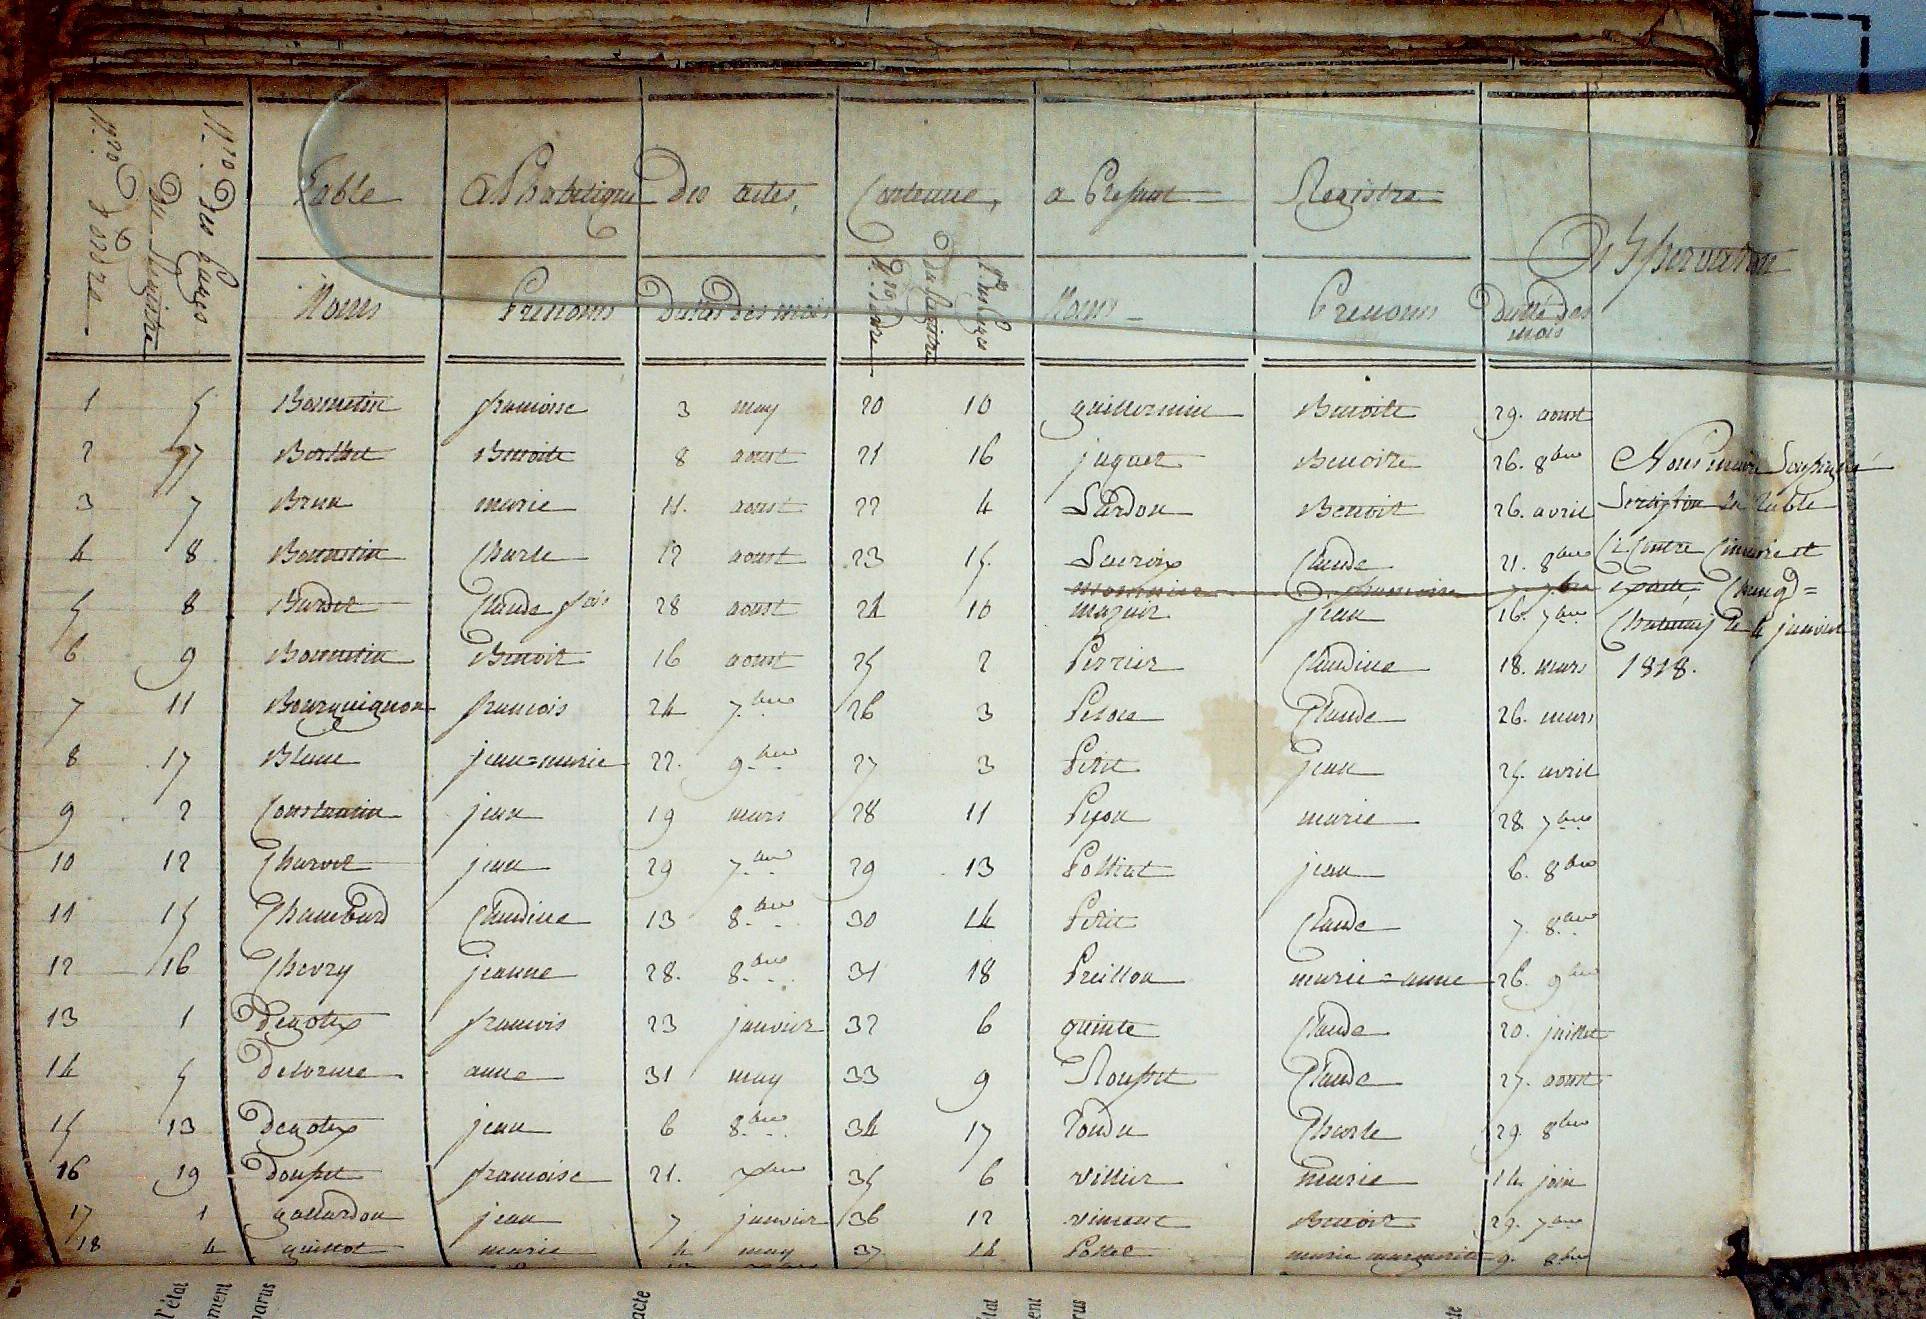 Table Alphabetique Des actes, Contenue, a Present Registre
Nro d'ordre
Nro Des pages Du Registre
Noms Prenoms Dattes des mois
Nro d'ordre
Nro Des pages Du Registre
Noms Prenoms Datte des mois
Observation
1 5 Bonnetin francoise 3 may 20 10 guillermin Benoite 29. aoust
2 7 Berthet Benoite 8 aoust 21 16 juguet Benoite 26. 8bre Nous maire Soussigné
3 7 Brun marie 11. aoust 22 4 Lardon Benoit 26. avril Certifion La Table
4 8 Bonnetin Charle 12 aoust 23 15. Lacroix Claude 21. 8bre Ci Contre Sincere et
monnier francoise 7 7bre exacte,
5 8 Burdet Claude fois 28 aoust 24 10 mazuir jean 16. 7bre Chatenay le 4 janvier
6 9 Bonnetin Benoit 16 aoust 25 2 Perrier Claudine 18. mars 1818.
7 11 Bourguignon francois 24 7bre 26 3 Claude 26. mars
8 17 Blanc jean=marie 22. 9bre 27 3 Petit jean 25. avril
9 2 Constantin jean 19 mars 28 11 Pijon marie 28. 7bre
10 12 Charvet jean 29 7bre 29 13 Polliat jean 6. 8bre
11 15 Chambard Claudine 13 8bre 30 14 Petit Claude 7. 8bre
12 16 Chevry jeanne 28. 8bre 31 18 Preillon marie=anne 26. 9bre
13 1 Degotex francois 23 janvier 32 6 quinte Claude 20. juillet
14 5 Delorme anne 31 may 33 9 Rousset Claude 27. aoust
15 13 degotex jean 6 8bre 34 17 Rondu Charle 29. 8bre
16 19 dousset francoise 21. xbre 35 6 villier marie 14. juin
17 1 gallardon jean 7 janvier 36 12 vincent Benoit 29. 7bre
18 4 guillot marie 4 may 37. 14 marie marguerite 9. 8bre
l'état
ment
parus
acte
état
ent
rus
te